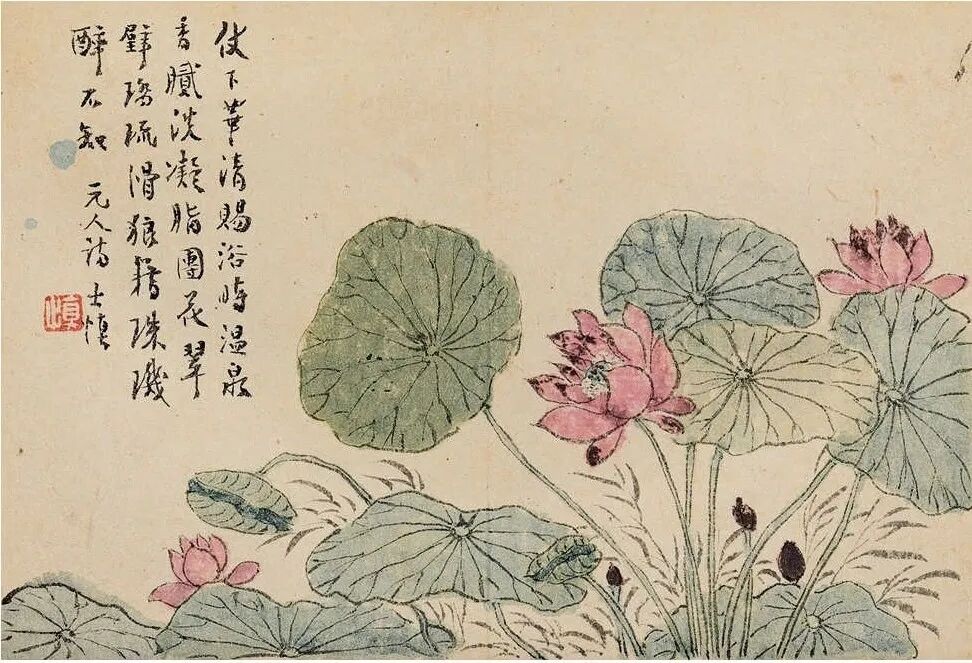 仗下華清賜浴時溫泉
香膩淡凝脂團花翠
璃琉滑狼籍珠璣
醉不知 元人詩 士慎
慎